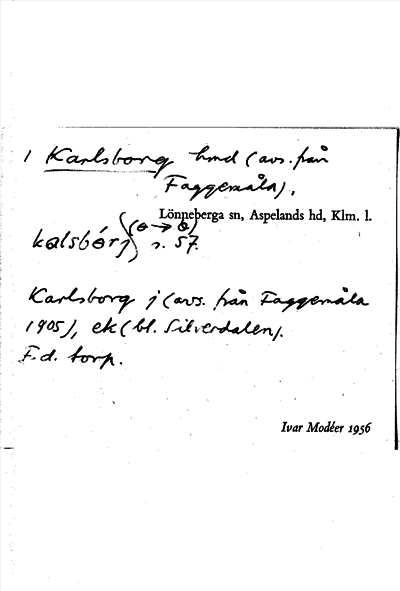 1 Karlsborg hmd (avs. från
Faggemåla).
Lönneberga sn, Aspelands hd, Klm. l.
(ɵ → ɵ)
s. 57.
Karlsborg j (avs. från Faggemåla
1905), ek (bl. Silverdalen).
F.d. torp.
Ivar Modéer 1956